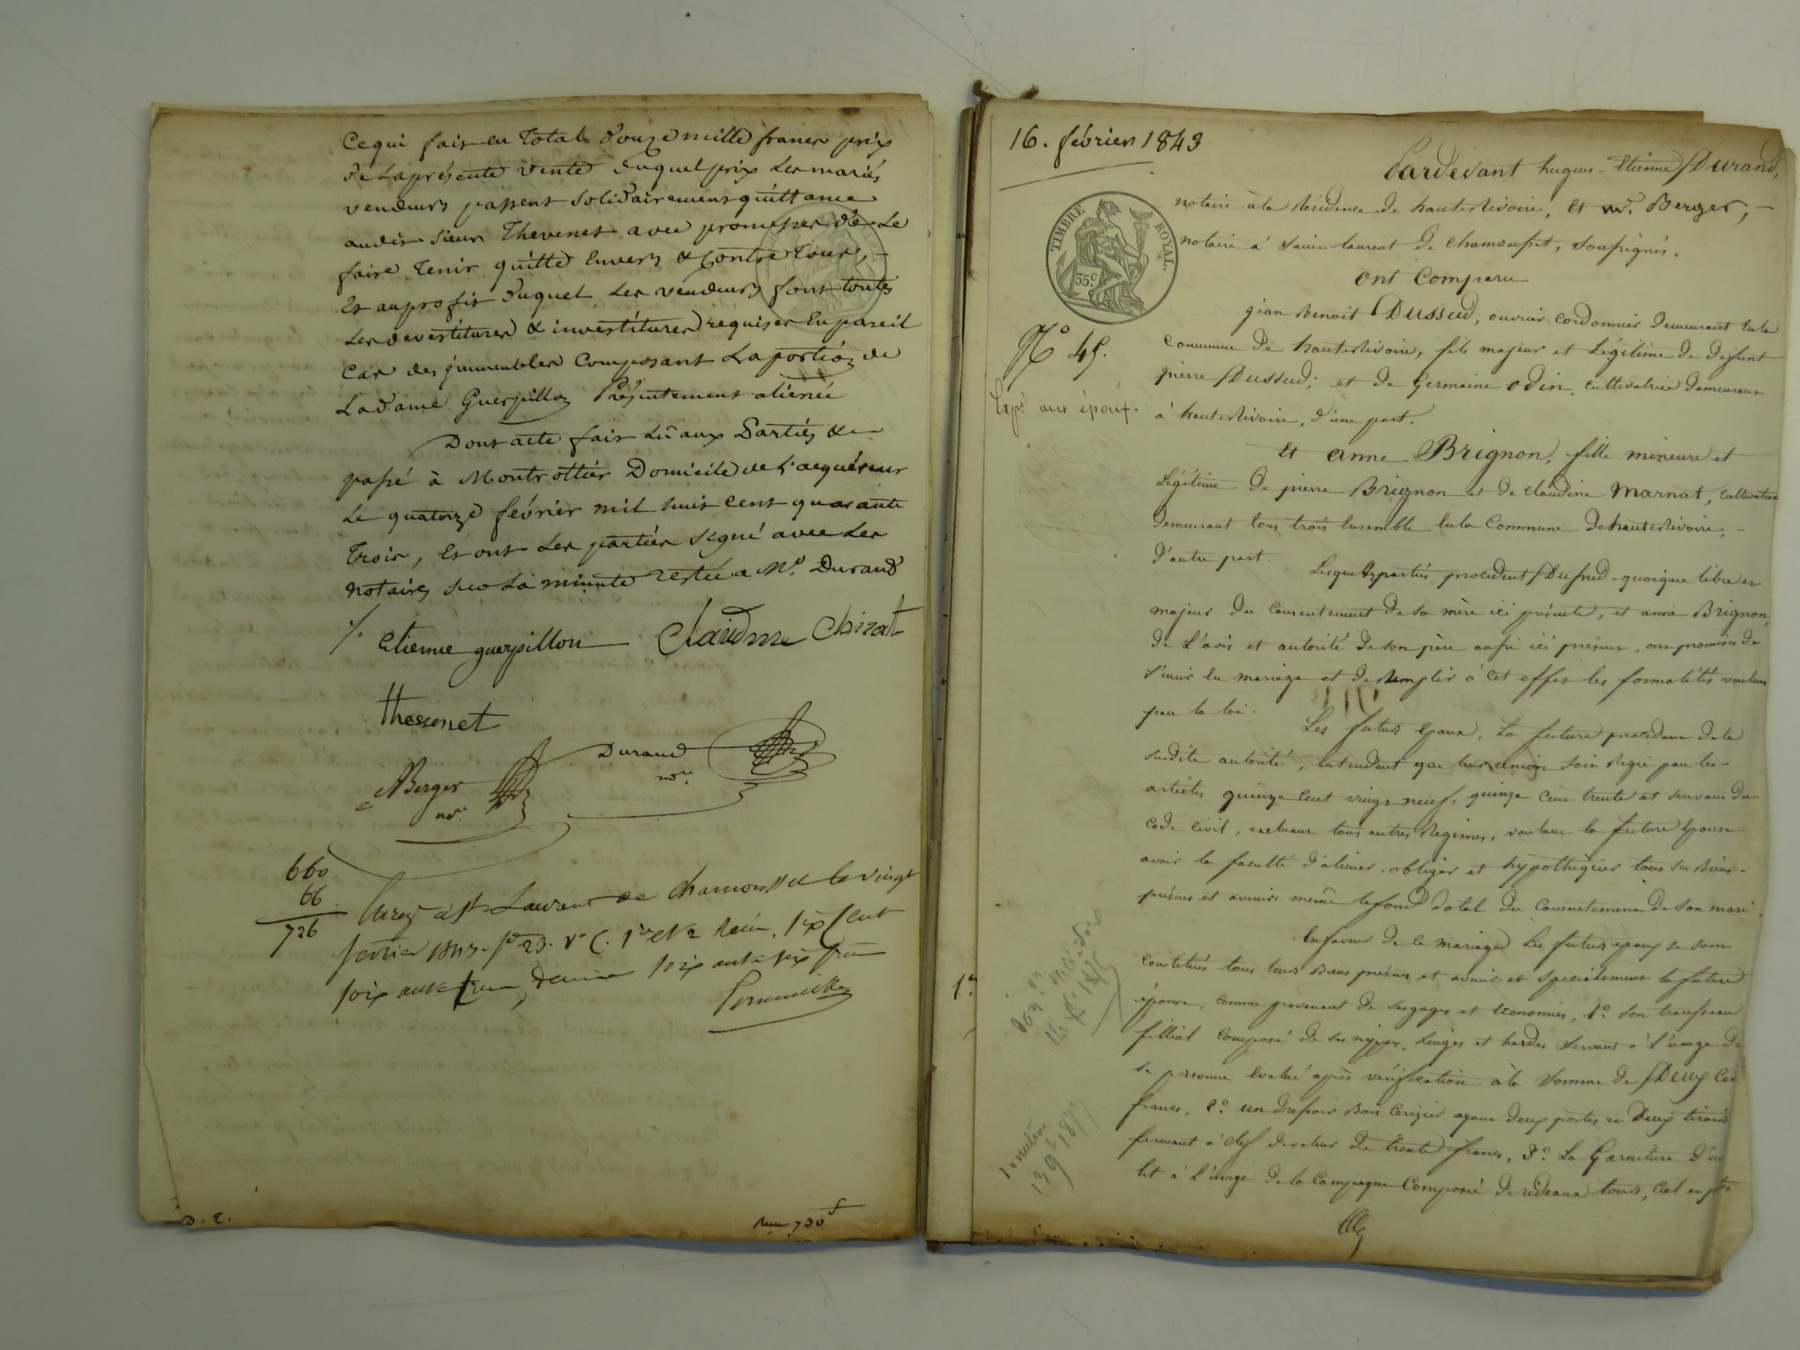 Ce qui fait en total d'ouze mille francs prix
de La présente vente duquel prix Les mariés
vendeurs passent solidairement quittance
audit sieur Thevenet avec promesse de Le
faire Tenir quitte Envers & Contre Tous, –
Et au profit duquel Les vendeurs font toutes
Les devestitures & investitures requises En pareil
Cas des immeubles Composant La portion de
La dame Guerpillon Présentement aliénée
Dont acte fait Lu aux Parties &
passé à Montrottier Domicile de L'acquéreur
Le quatorze février mil huit cent quarante
Trois, Et ont Les parties signé avec Les
notaires sur La minute restée a Me. Durand
Etienne guerpillon Claudine Chirat
Thevenet
Durand
nore.
Berger
nre.
660
66
726
Enreg à St Laurent de Chamousset le vingt
fevrier 1843. fo 23. Vo C. 1re et 2 Reçu, six Cent
soixante francs, decime soixante six francs
D. E.
16. février 1843
Pardevant hugues - Etienne Durand,
notaire à la Résidence de hauterivoire, Et me. Berger, –
notaire à Saint laurent de chamousset, Soussignés.
TIMBRE ROYAL
35 c
ont Comparu
No 45.
jean Benoit Dussud, ouvrier cordonnier demeurant En la
Commune de hauterivoire, fils majeur et Légitime de défunt
pierre Dussud; et de Germaine odin, cultivatrice demeurant
Expé. aux époux.
à hauterivoire, d'une part.
Et anne Brignon, fille mineure et
Légitime de pierre Brignon et de claudine marnat, cultivateurs
demeurant tous trois Ensemble En la Commune de hauterivoire, –
d'autre part.
Lesquels parties, procédant Dussud quoique libre et
majeur du Consentement de sa mère ici présente, et anne Brignon,
de L'avis et autorité de son père aussi ici présent, ont promis de
s'unir En mariage et de Remplir à cet effet les formalités voulues
par la loi.
Les futurs époux, La future procédant de la
susdite autorité, entendent que leur union soit Régie par les –
articles quinze Cent vingt neuf, quinze Cent trente et suivans du
Code Civil, excluant tous autres Régimes, voulant la future épouse
avoir la faculté d'aliener, obliger et hypothéquer tous ses Biens –
présens et avenirs même le fond dotal du Consentement de son mari.
En faveur de Ce mariage Les futurs époux se sont
Constitués tous leurs Biens présens et avenir et Spécialement la future
épouse, Comme provenant de ses gages et Economies, 1o. Son trousseau
fillial Composé de ses nippes, linges et hardes servant à L'usage de
sa personne Evalué après vérification à la Somme de Deux Cent
francs, 2o. un dressoir Bois Cerizier ayant deux portes et Deux tiroirs
fermant à clef de valeur de trente francs, 3o. La Garniture d'un
lit à L'usage de la Campagne Composé de rideaux tours, Ciel en